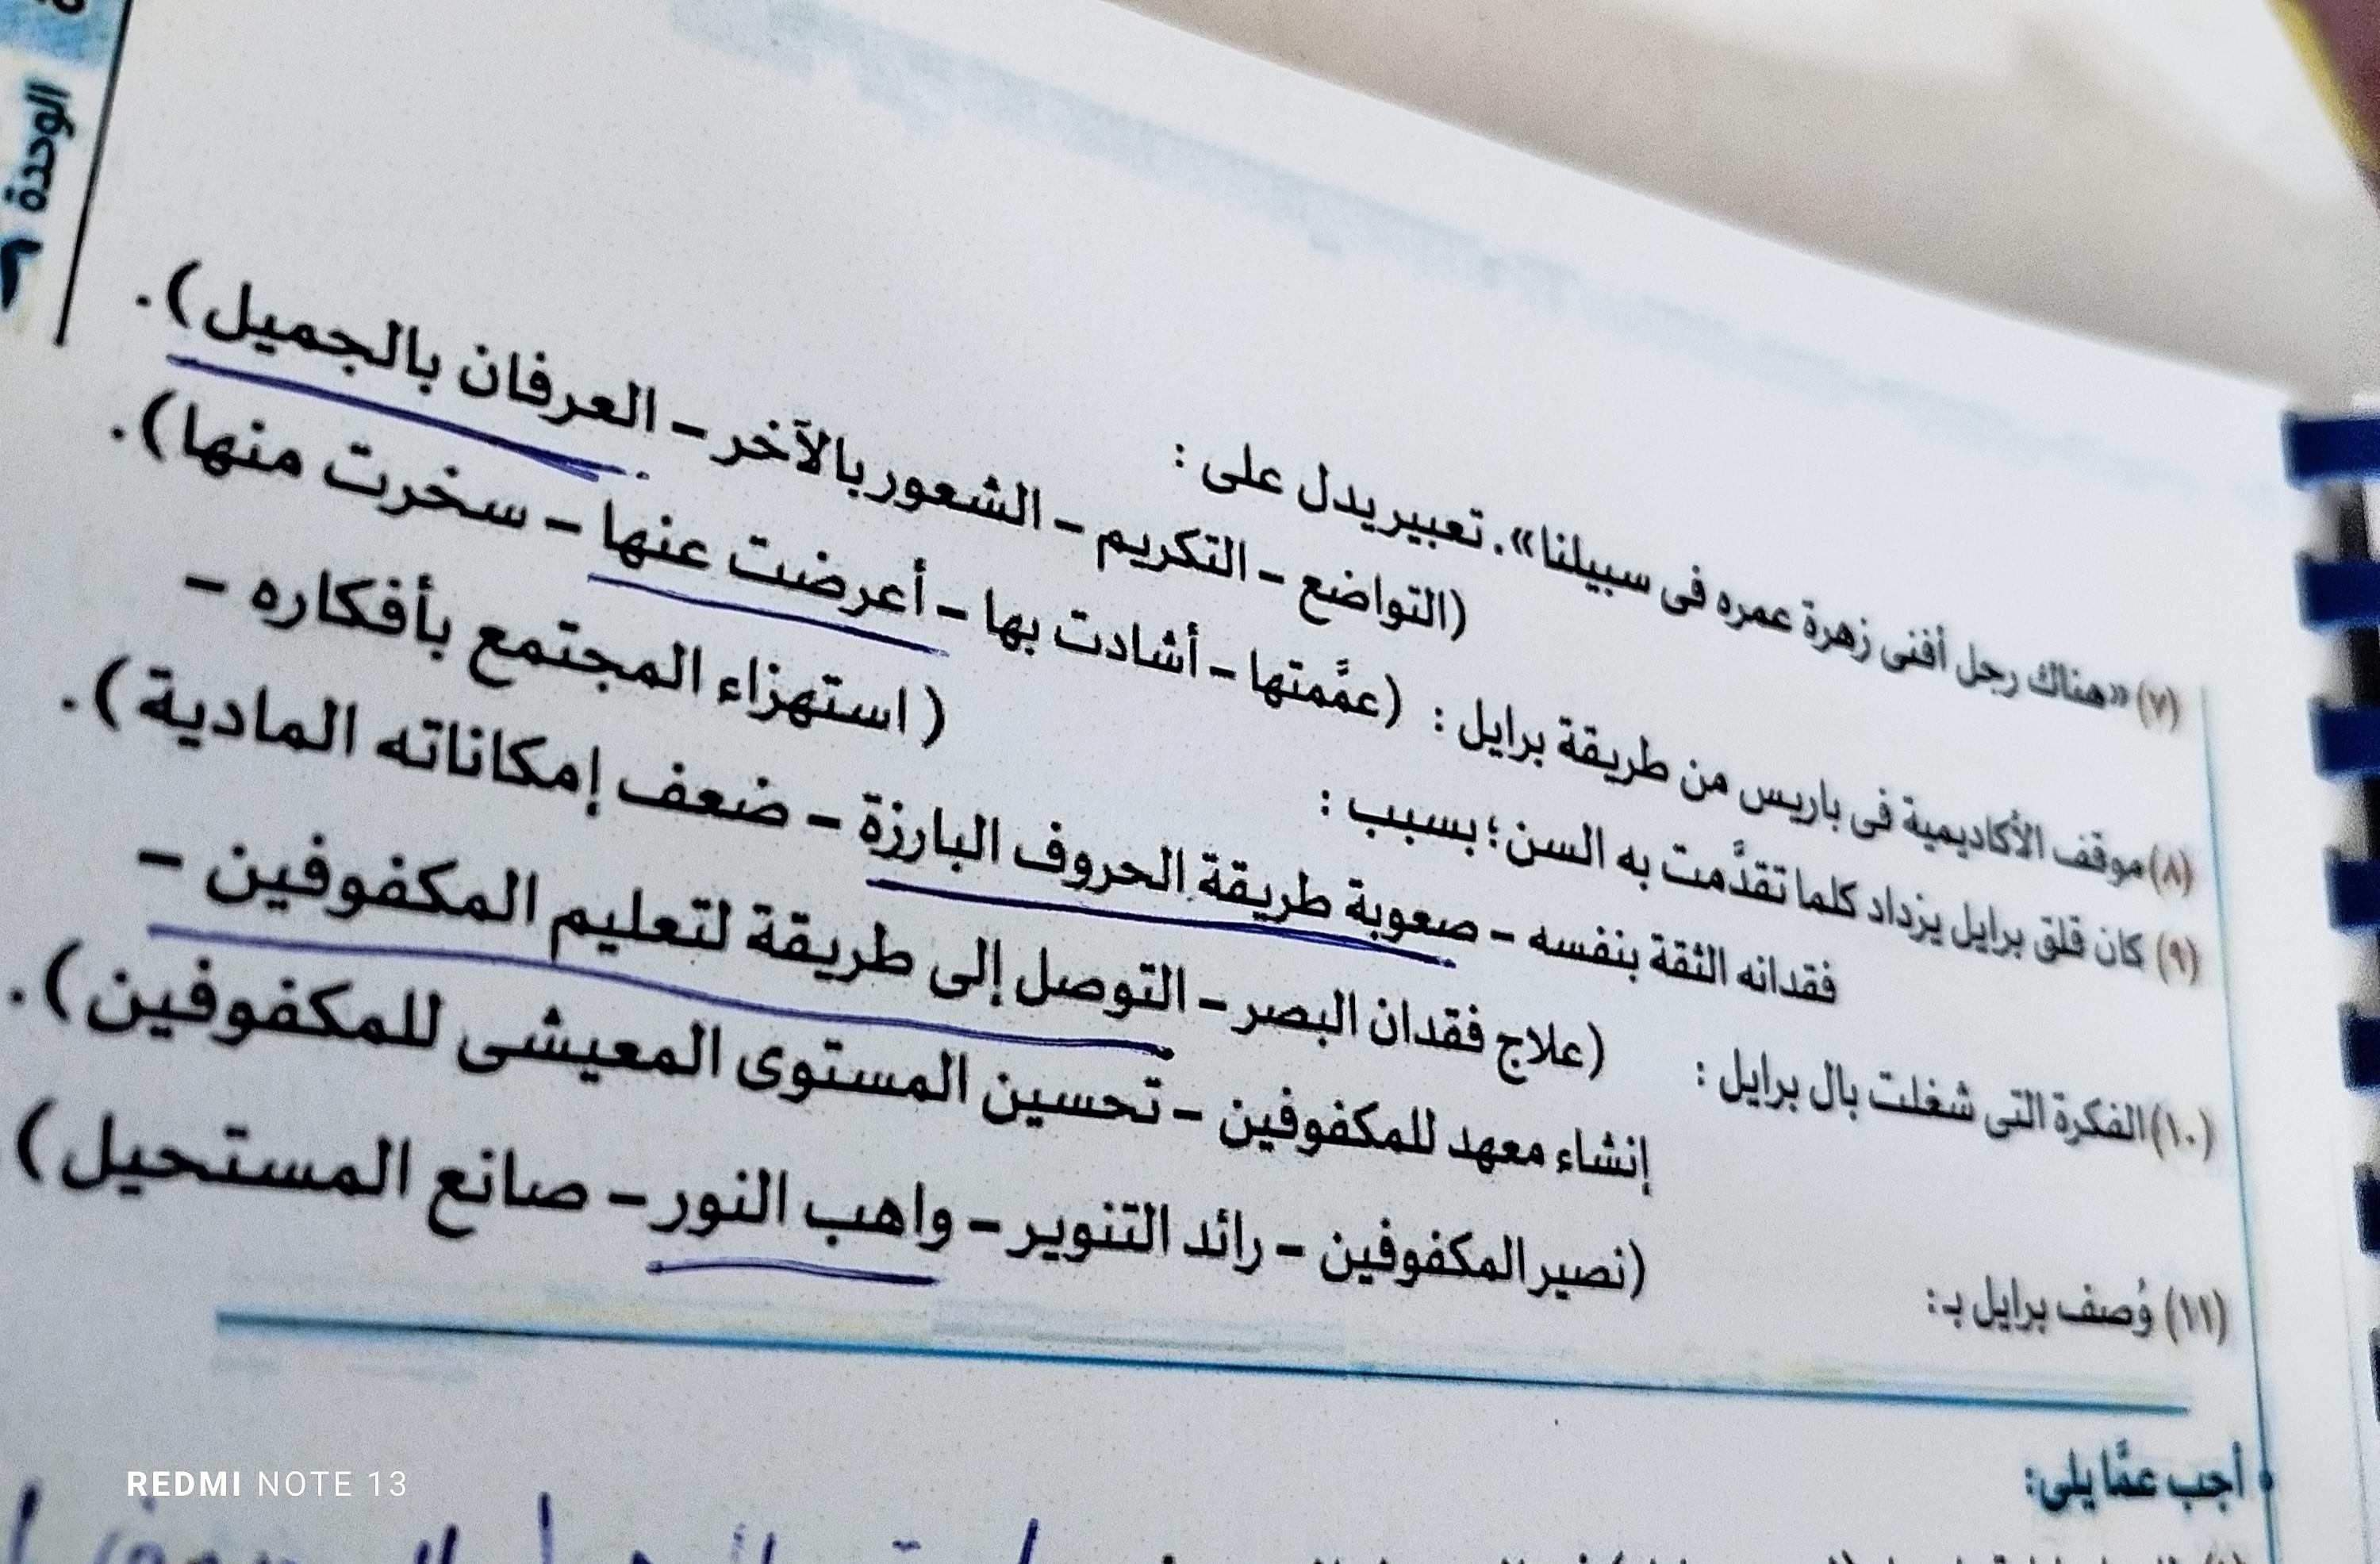 الوحدة
(٧) «هناك رجل أفنى زهرة عمره فى سبيلنا». تعبير يدل على :
(التواضع – التكريم – الشعور بالآخر – العرفان بالجميل).
(٨) موقف الأكاديمية فى باريس من طريقة برايل : (عمَّمتها – أشادت بها – أعرضت عنها – سخرت منها).
(٩) كان قلق برايل يزداد كلما تقدَّمت به السن؛ بسبب :
( استهزاء المجتمع بأفكاره –
فقدانه الثقة بنفسه – صعوبة طريقة الحروف البارزة – ضعف إمكاناته المادية).
(١٠) الفكرة التى شغلت بال برايل :
(علاج فقدان البصر – التوصل إلى طريقة لتعليم المكفوفين –
إنشاء معهد للمكفوفين – تحسين المستوى المعيشى للمكفوفين).
(١١) وُصف برايل بـ :
(نصير المكفوفين – رائد التنوير – واهب النور – صانع المستحيل)
أجب عمَّا يلى:
REDMI NOTE 13